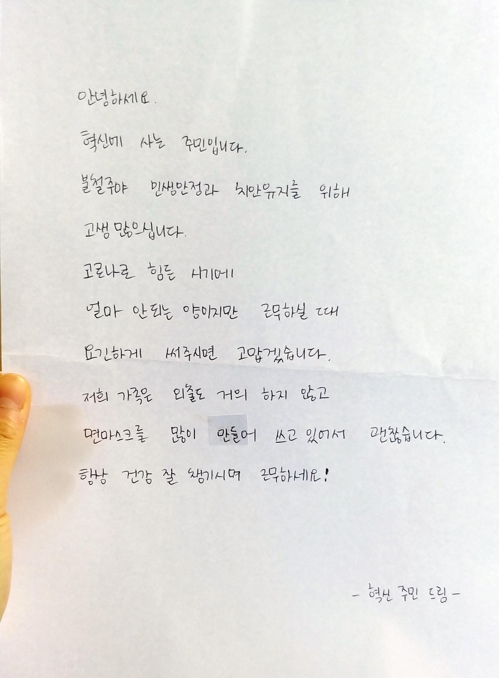 안녕하세요.
혁신에 사는 주민입니다.
불철주야 민생안정과 치안유지를 위해
고생 많으십니다.
코로나로 힘든 시기에
얼마 안되는 양이지만 근무하실 때
요긴하게 써주시면 고맙겠습니다.
저희 가족은 외출도 거의 하지 않고
면마스크를 많이 만들어 쓰고 있어서 괜찮습니다.
항상 건강 잘 챙기시며 근무하세요!
- 혁신 주민 드림 -